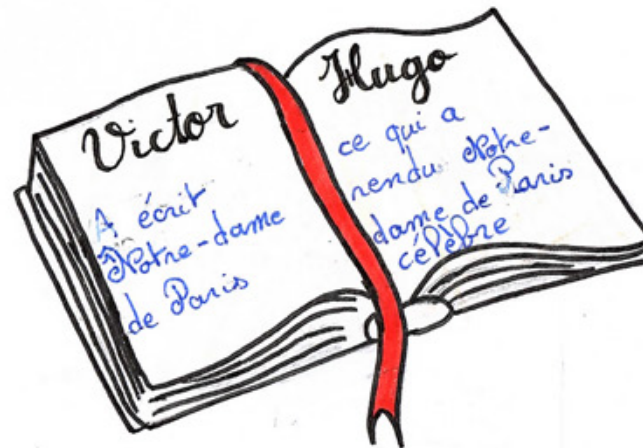 Victor
A écrit
Notre-dame
de Paris
Hugo
ce qui a
rendu Notre-
dame de Paris
célèbre